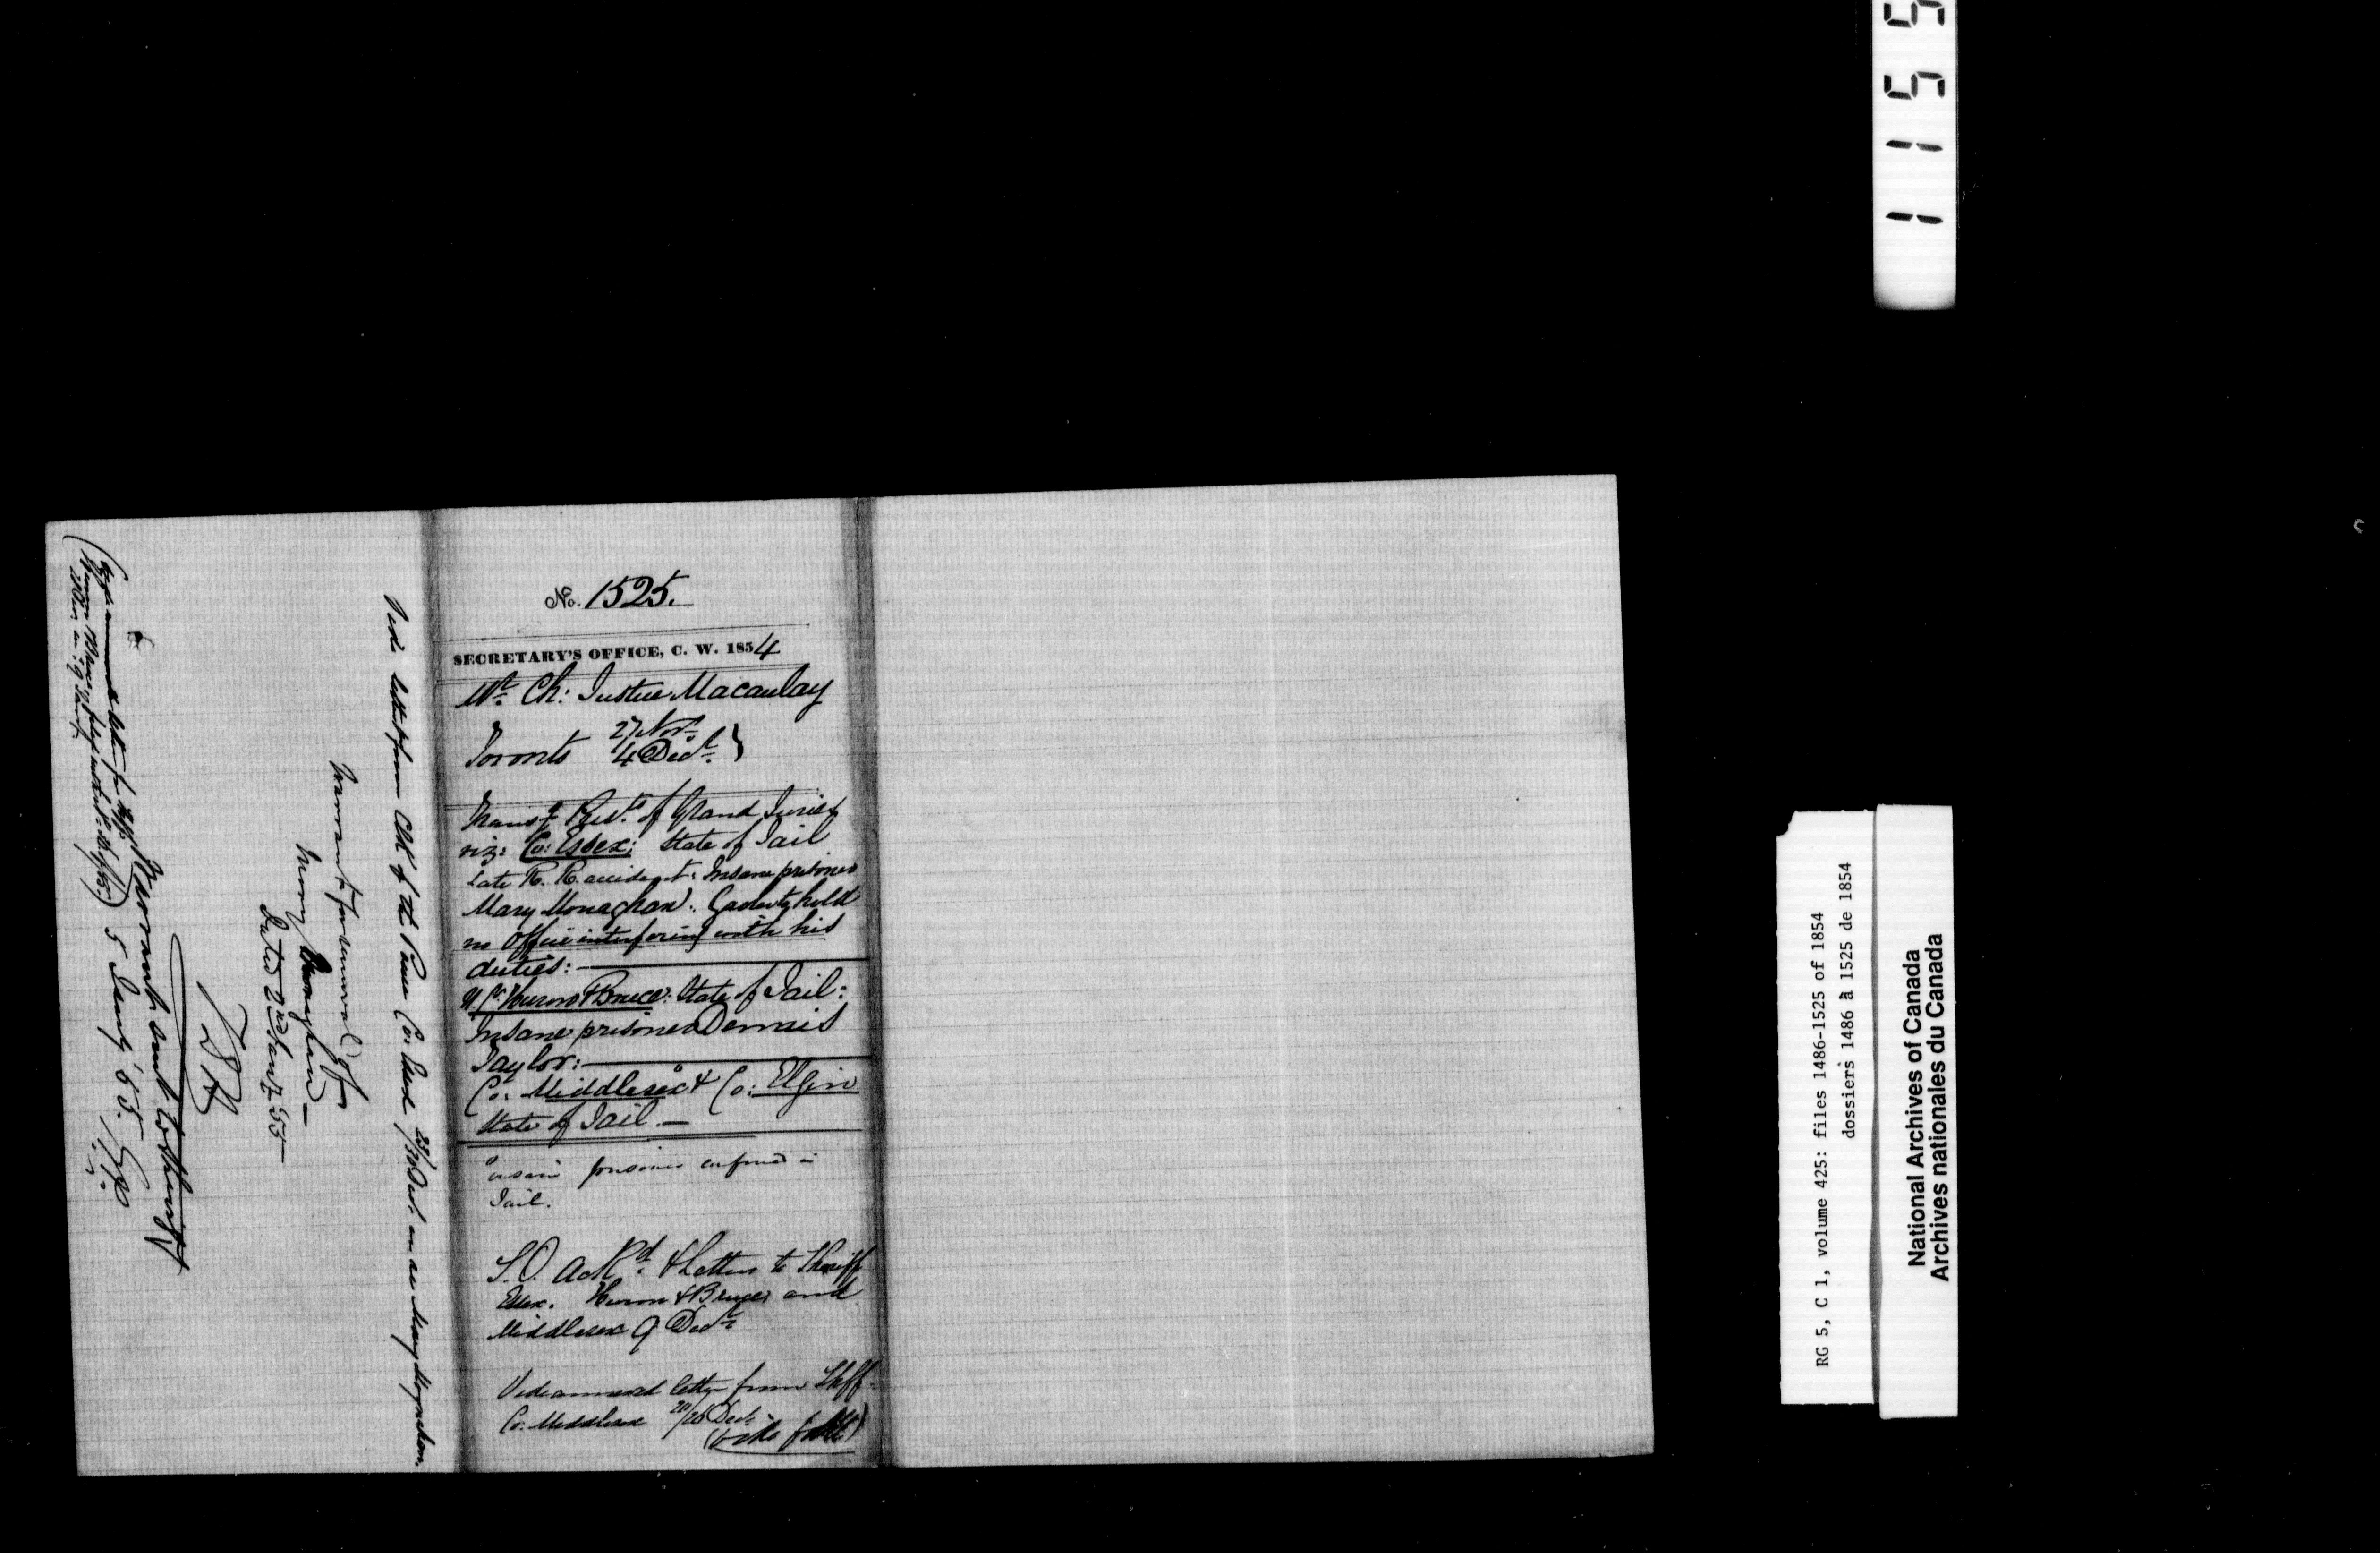 No. 1525.
SECRETARY'S OFFICE, C. W. 1854
Mr. Ch: Justice Macaulay
Toronto 27 Novr
4 Decr }
Transg Prest. of Grand Juries
viz: Co: Essex; State of Jail
late R. R. accident: Insane prisoner
Mary Monaghan: Gaoler to hold
no Office interfering with his
duties:
U. Cs. Huron & Bruce: State of Jail:
Insane prisoner Dennis
Taylor:
Co: Middlesex & Co: Elgin
State of Jail —
Insane prisoner confined in
Jail.
S.O. Ackd. & Letters to Sheriff
Essex. Huron & Bruce and
Middlesex 9 Decr
Vide annexed letter from Shff.
Co: Middlesex 20/26 Dec.
Vide letter from Clk of the Peace Co. Essex Dec. on as Mary Monaghan.
Warrant for removal of
Mary Monaghan —
Dated 2nd Jany 55 —
Warrant sent to Sheriff
5 Jany '55.
RG 5, C 1, volume 425: files 1486-1525 of 1854
dossiers 1486 à 1525 de 1854
National Archives of Canada
Archives nationales du Canada
1 1 5 5